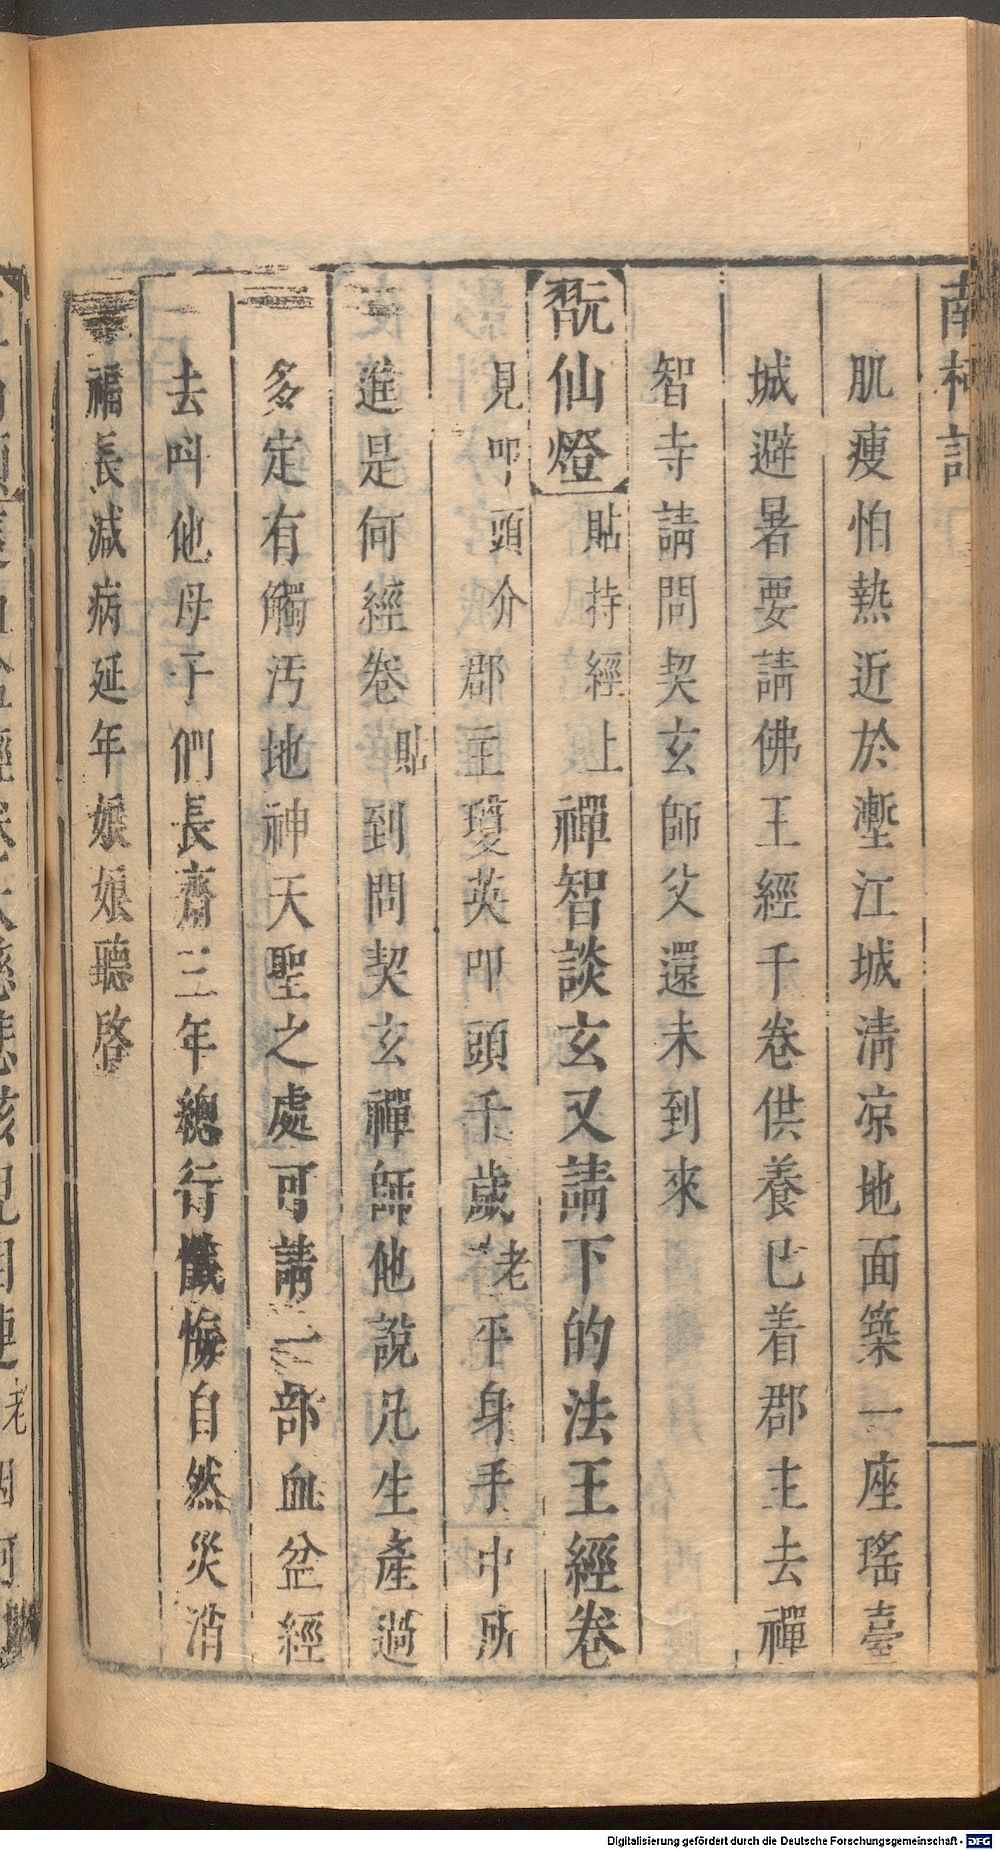 南柯記
肌瘦怕熱近於壍江城清凉地面築一座瑤臺
城避暑要請佛王經千卷供養已着郡主去禪
智寺請問契玄師父還未到來
翫仙燈貼持經上禪智談玄又請下的法王經卷
見叩頭介郡主瓊英叩頭千歲老平身手中所
進是何經卷貼到問契玄禪師他說凡生產過
多定有觸汚地神天聖之處可請一部血盆經
去叫他母子們長齋三年總行懺悔自然災消
福長減病延年娘娘聽啓
Digitalisierung gefördert durch die Deutsche Forschungsgemeinschaft - DFG